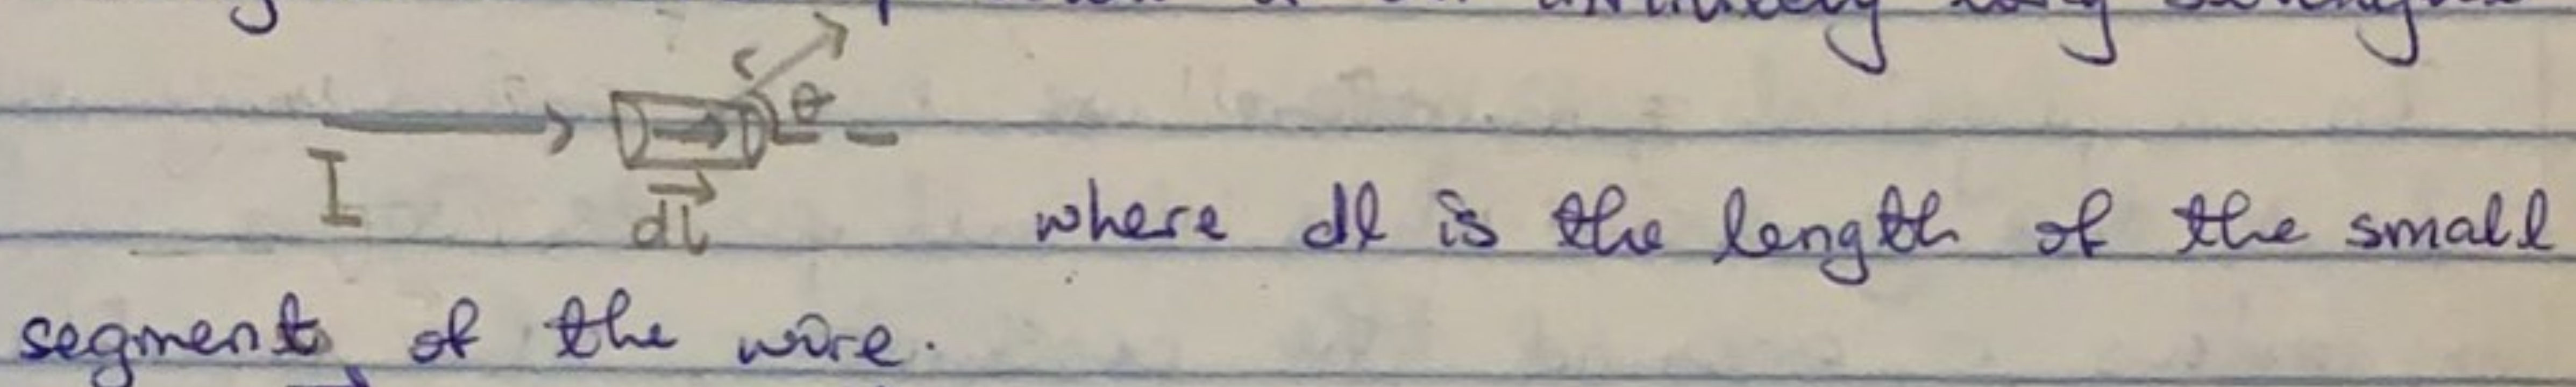 r
θ
I
dl
where dl is the length of the small
segment of the wire.